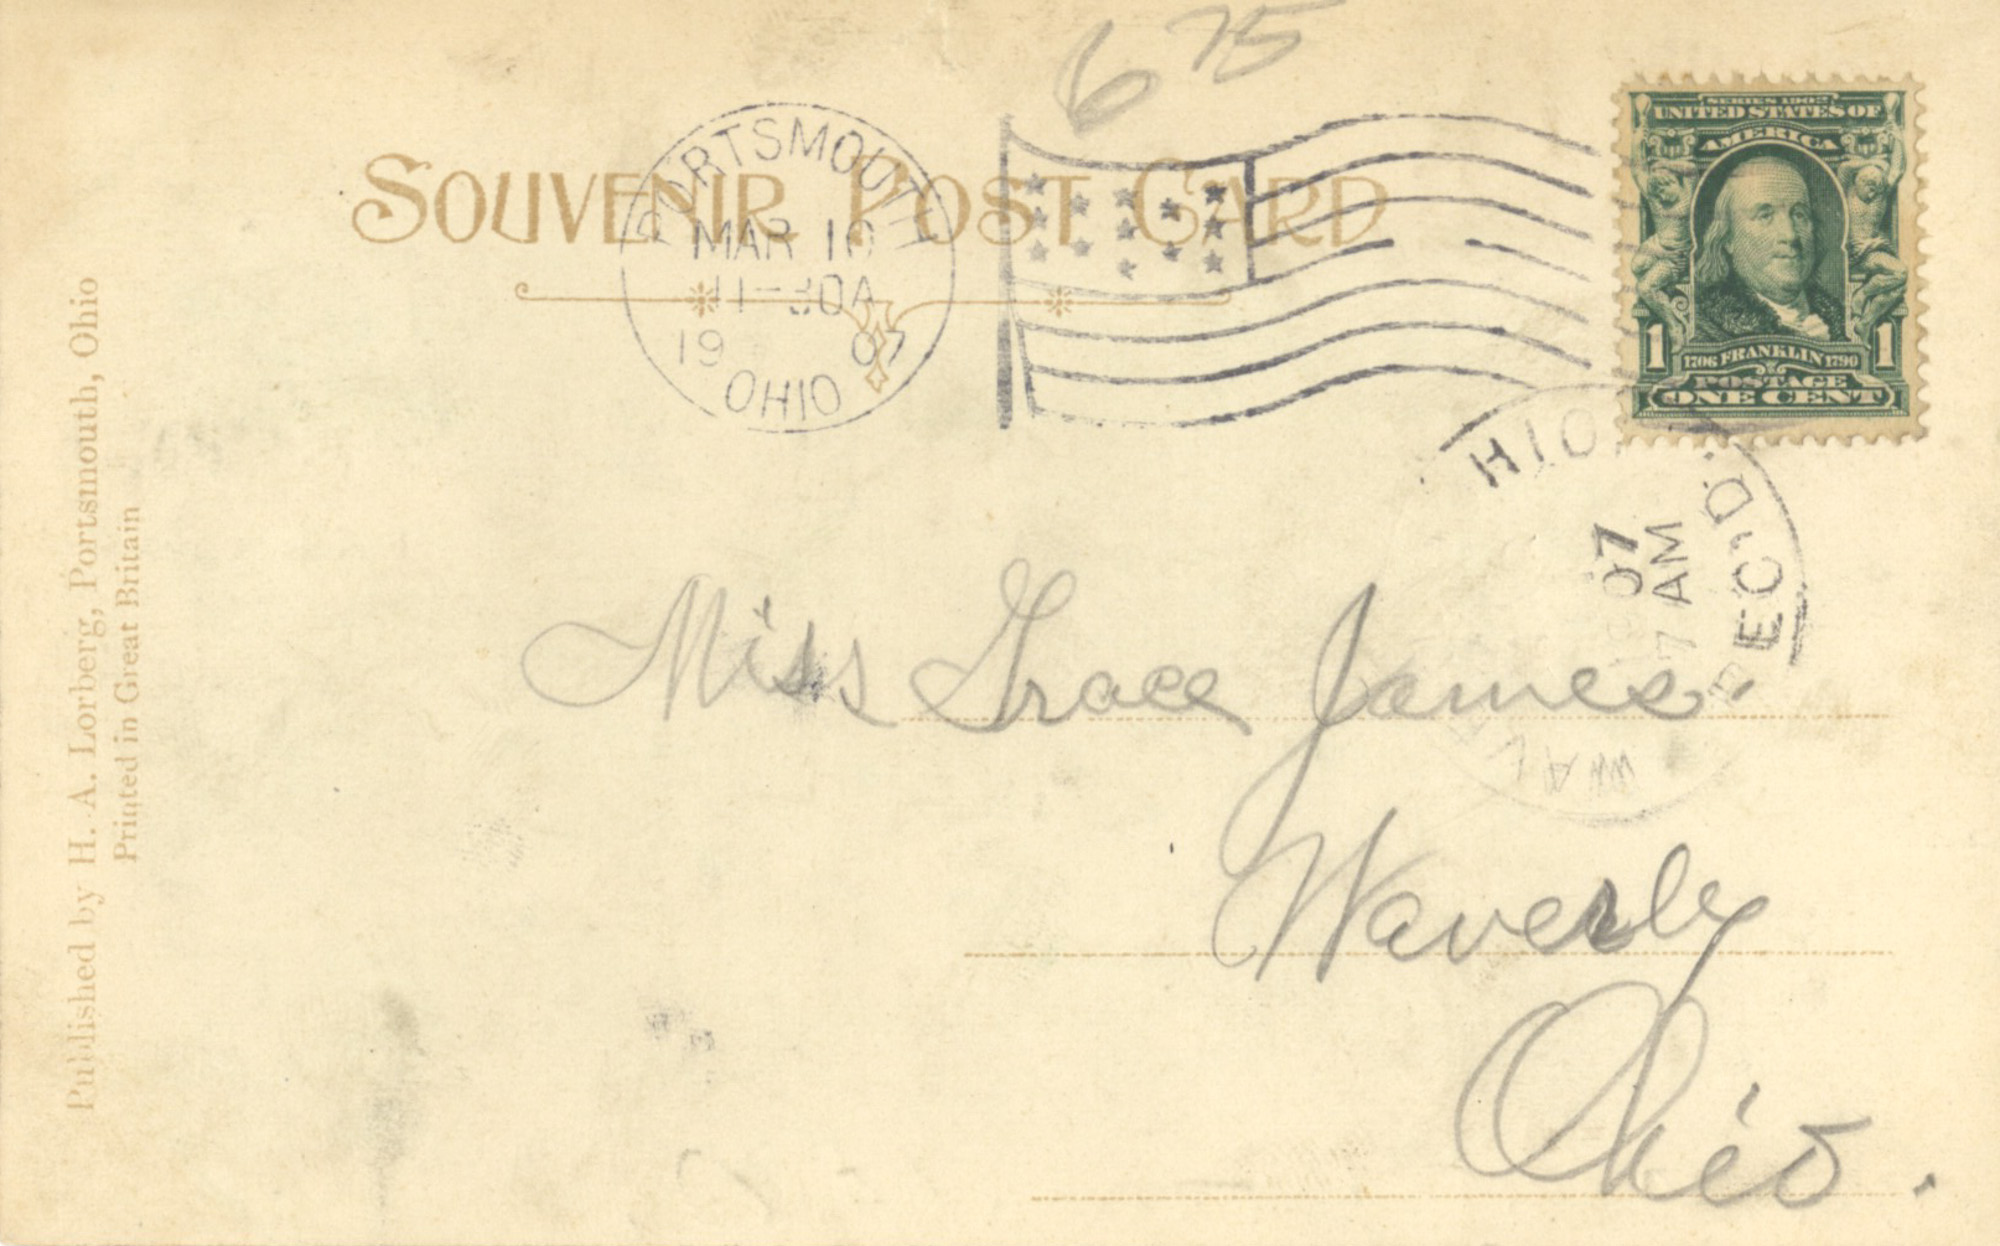 675
SOUVENIR POST CARD
PORTSMOUTH
MAR 10
11-30A
19 07
OHIO
SERIES 1902
UNITED STATES OF
AMERICA
1 1706 FRANKLIN 1790 1
POSTAGE
ONE CENT
HIO
REC'D.
07
7 AM
Miss Grace James.
Waverly
Ohio.
Published by H. A. Lorberg, Portsmouth, Ohio
Printed in Great Britain